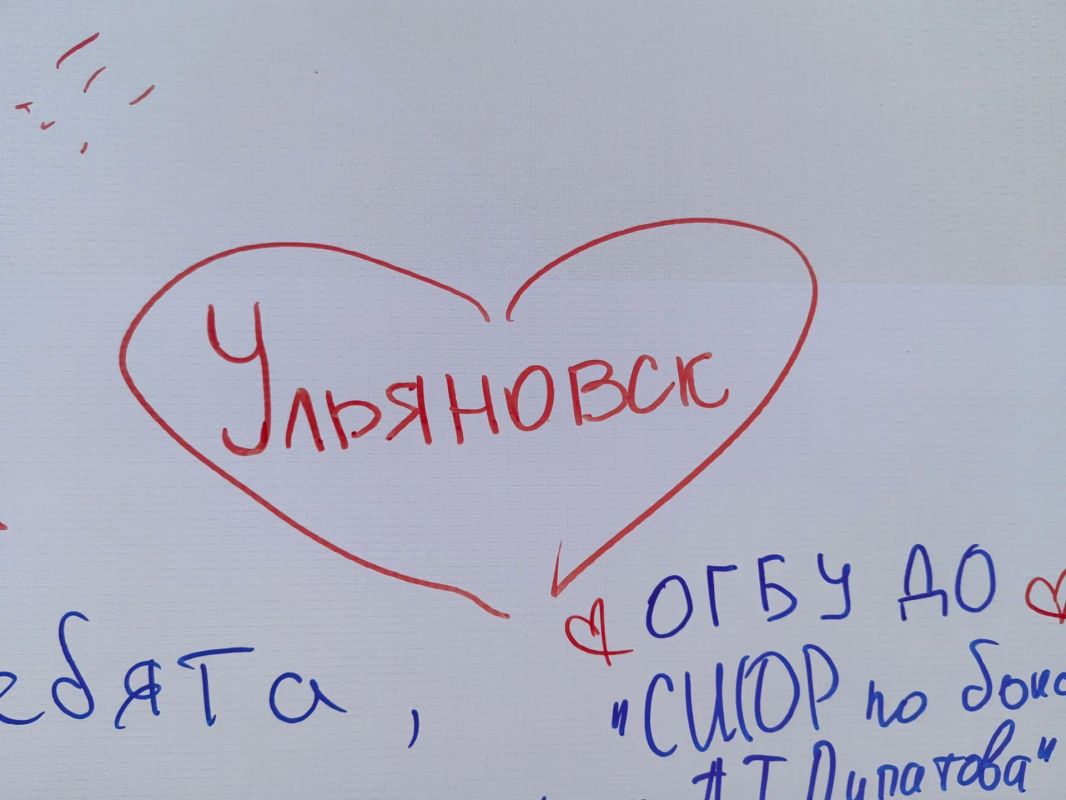 Ульяновск
ОГБУ ДО
ебята,
"СШОР по бокс
Л.Т. Липатова"